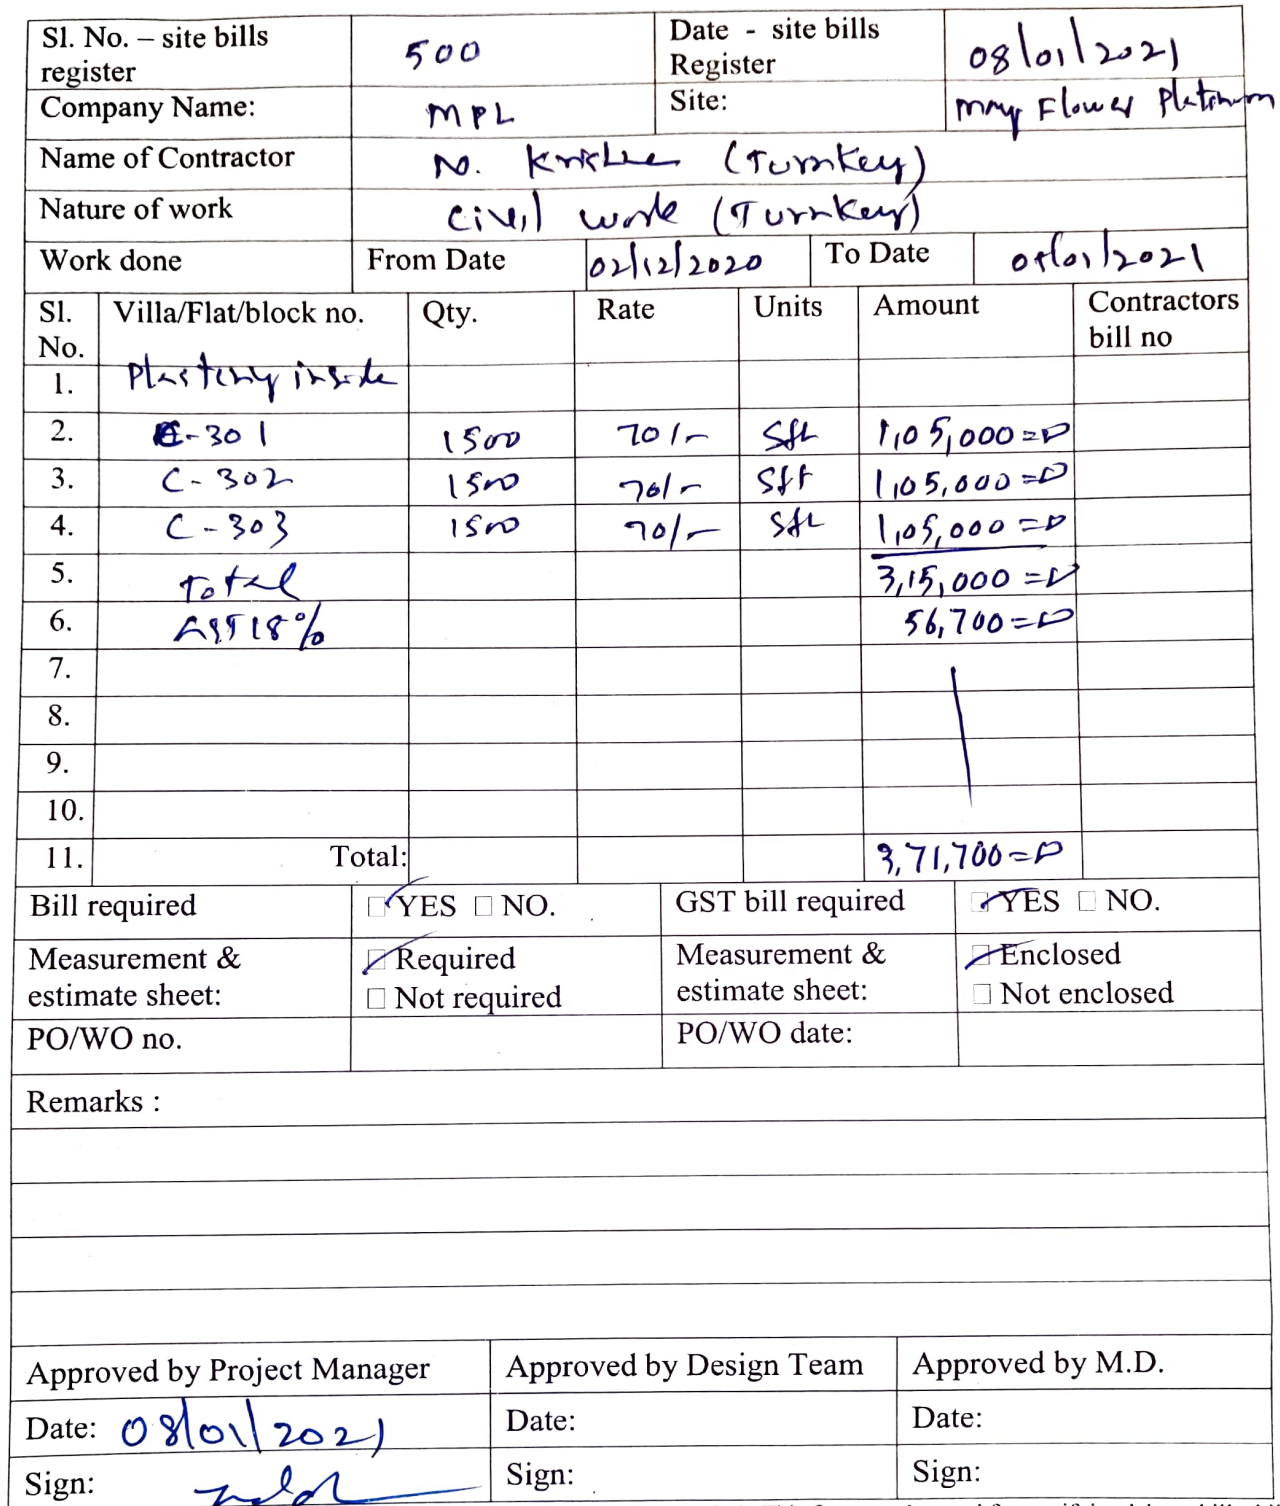 Sl. No. – site bills register 500 Date - site bills Register 08/01/2021
Company Name: MPL Site: May Flower Platinum
Name of Contractor N. Krishna (Turnkey)
Nature of work Civil work (Turnkey)
Work done From Date 02/12/2020 To Date /01/2021
Sl. No. Villa/Flat/block no. Qty. Rate Units Amount Contractors bill no
1. Plastering inside
2. C-301 1500 70/- Sft 1,05,000=0
3. C-302 1500 70/- Sft 1,05,000=0
4. C-303 1500 70/- Sft 1,05,000=0
5. Total 3,15,000=0
6. GST 18% 56,700=0
7.
8.
9.
10.
11. Total: 3,71,700=0
Bill required YES NO. GST bill required YES NO.
Measurement & estimate sheet: Required Not required Measurement & estimate sheet: Enclosed Not enclosed
PO/WO no. PO/WO date:
Remarks :
Approved by Project Manager Approved by Design Team Approved by M.D.
Date: 08/01/2021 Date: Date:
Sign: Sign: Sign: